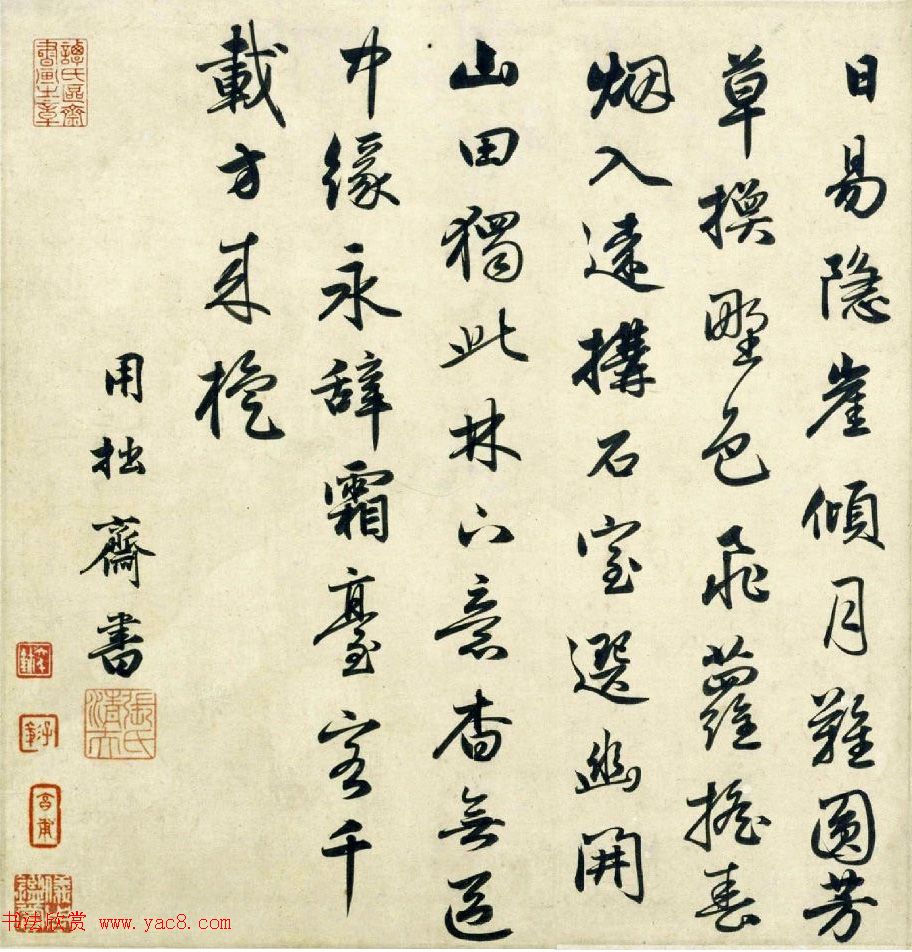 日易隱崖傾月難圓芳
草換野色飛蘿搖春
烟入遠搆石室選幽開
山田獨此林下意杳無區
中緣永辭霜臺客千
載方來旋
用拙齋書
譚氏區齋書畫之章
书法欣赏 www.yac8.com